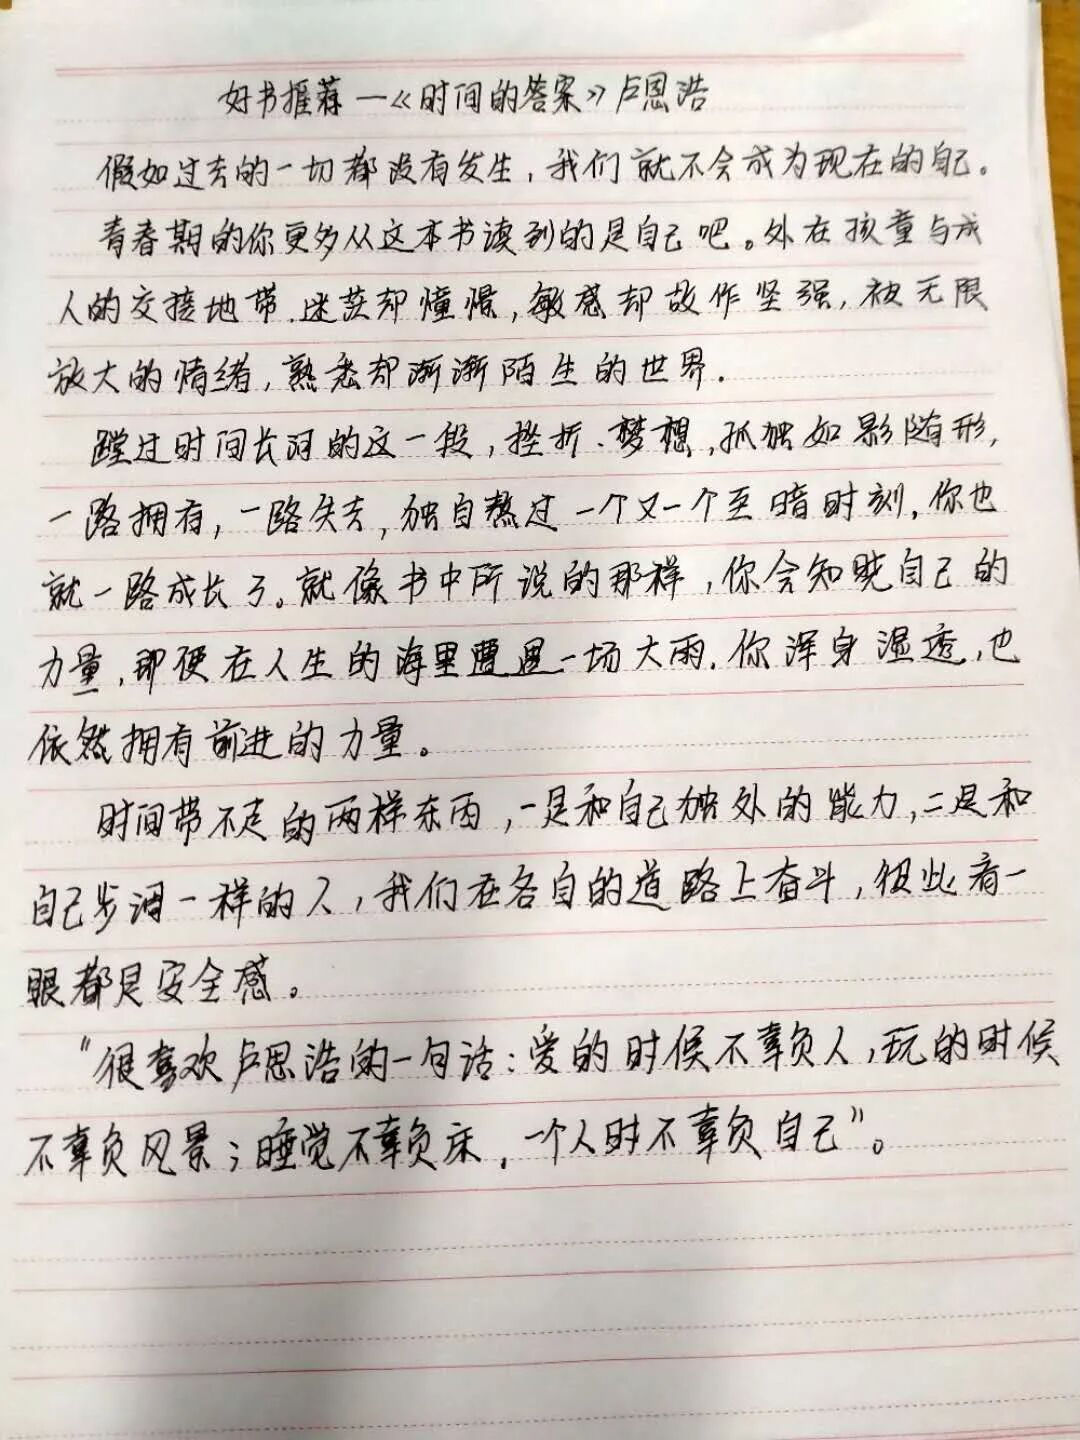 好书推荐一《时间的答案》卢思浩
假如过去的一切都没有发生,我们就不会成为现在的自己。
青春期的你更多从这本书读到的是自己吧。外在孩童与成
人的交接地带.迷茫却憧憬,敏感却故作坚强,被无限
放大的情绪,熟悉却渐渐陌生的世界.
蹚过时间长河的这一段,挫折.梦想,孤独如影随形,
一路拥有,一路失去,独自熬过一个又一个至暗时刻,你也
就一路成长了。就像书中所说的那样,你会知晓自己的
力量,即便在人生的海里遭遇一场大雨.你浑身湿透,也
依然拥有前进的力量。
时间带不走的两样东西,一是和自己独处的能力,二是和
自己步调一样的人,我们在各自的道路上奋斗,彼此看一
眼都是安全感。
"很喜欢卢思浩的一句话:爱的时候不辜负人,玩的时候
不辜负风景;睡觉不辜负床,一个人时不辜负自己"。